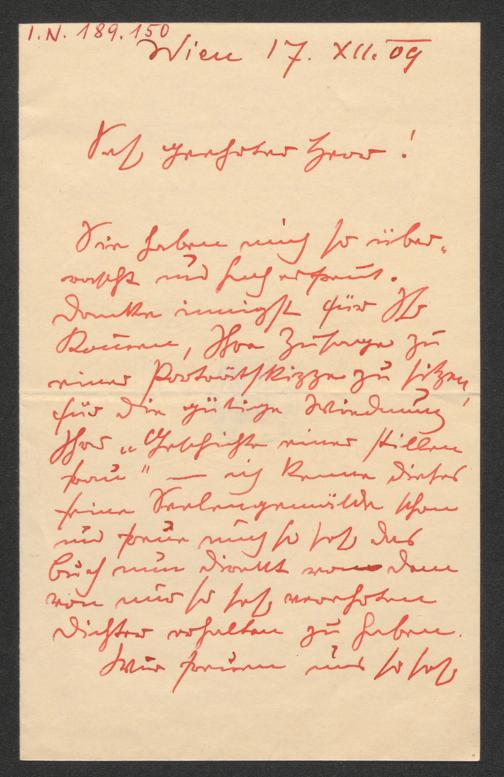 I.N. 189.150
Wien 17. XII. 09
Sehr geehrter Herr!
Sie haben mich so über-
rascht und hocherfreut.
Danke innigst für Ihr
Kommen, Ihre Zusage zu
einer Porträtskizze zu sitzen,
für die gütige Widmung
Ihrer „Geschichte einer stillen
Frau" — ich kenne dieses
feine Seelengemälde schon
und freue mich so sehr das
Buch nun direkt von dem
von mir so sehr verehrten
Dichter erhalten zu haben.
Wir freuen uns so sehr